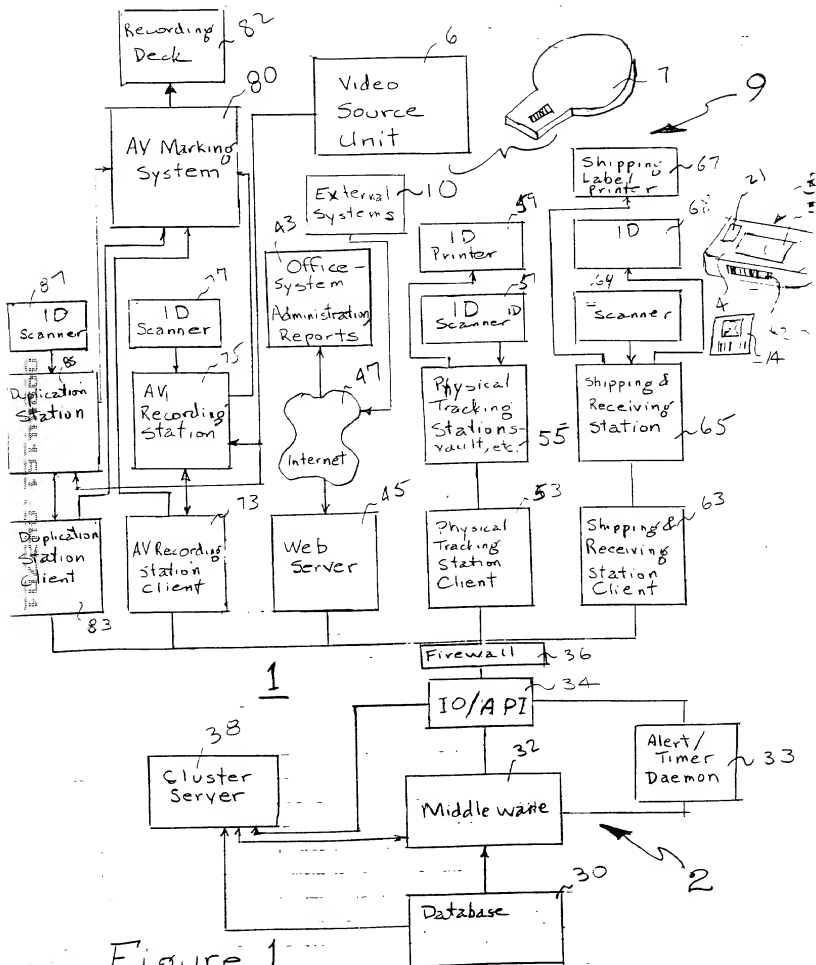 Recording
Deck
82
80
6
Video
Source
Unit
7
9
AV Marking
System
External
Systems
10
Shipping
Label
Printer
67
43
Office-
System
Administration
Reports
59
ID
Printer
ID
21
4
14
87
ID
Scanner
77
ID
Scanner
57
ID
Scanner
ID
69
Scanner
85
Duplication
Station
75
AV
Recording
Station
47
Internet
Physical
Tracking
Stations-
vault, etc.
55
Shipping &
Receiving
Station
65
Duplication
Station
Client
83
73
AV Recording
Station
Client
45
Web
Server
53
Physical
Tracking
Station
Client
63
Shipping &
Receiving
Station
Client
1
Firewall
36
IO/API
34
38
Cluster
Server
32
Middle ware
Alert/
Timer
Daemon
33
2
30
Database
Figure 1